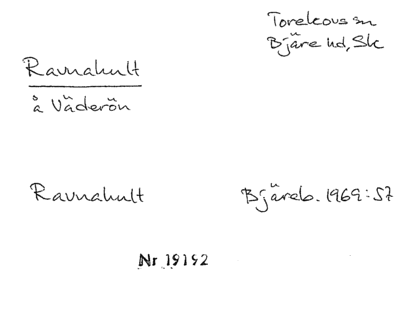 Torekovs sn
Bjäre hd, Sk
Ravnahult
å Väderön
Ravnahult Bjäreb. 1969:57
Nr 19192